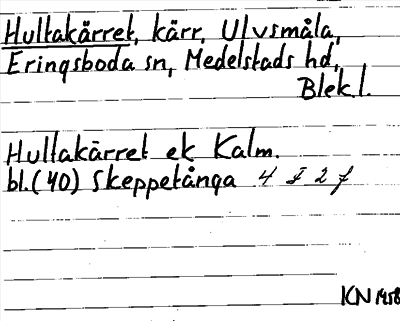 Hultakärret, kärr, Ulvsmåla,
Eringsboda sn, Medelstads hd,
Blek.l.
Hultakärret ek Kalm.
bl.(40) Skeppetånga 4 I 2 f
KN 1958